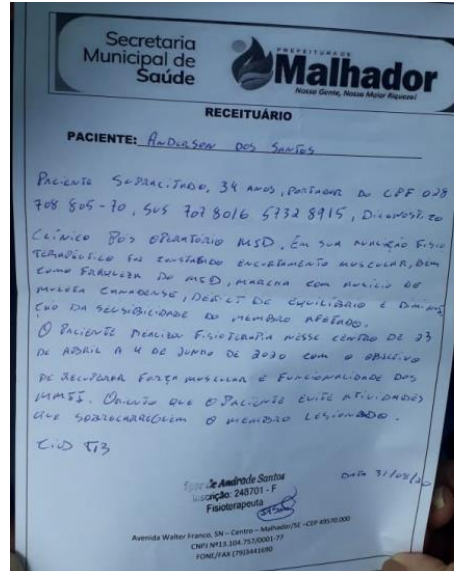 Secretaria
Municipal de
Saúde
PREFEITURA DE
Malhador
Nossa Gente, Nossa Maior Riqueza!
RECEITUÁRIO
PACIENTE: ANDERSON DOS SANTOS
PACIENTE SUPRACITADO, 34 ANOS, PORTADOR DO CPF 028
708 805-70, SUS 707 8016 5732 8915, DIAGNOSTICO
CLÍNICO PÓS OPERATÓRIO MSD, EM SUA AVALIAÇÃO FISIO
TERAPÊUTICA FOI CONSTATADO ENCURTAMENTO MUSCULAR, BEM
COMO FRAQUEZA DO MSD, MARCHA COM AUXILIO DE
MULETA CANADENSE, DEFICIT DE EQUILIBRIO E DIMINUI
ÇÃO DA SENSIBILIDADE DO MEMBRO AFETADO.
O PACIENTE REALIZOU FISIOTERAPIA NESSE CENTRO DE 23
DE ABRIL A 4 DE JUNHO DE 2020 COM O OBJETIVO
DE RECUPERAR FORÇA MUSCULAR E FUNCIONALIDADE DOS
MMII. ORIENTO QUE O PACIENTE EVITE ATIVIDADES
QUE SOBRECARREGUEM O MEMBRO LESIONADO.
CID T13
DATA 31/08/20
de Andrade Santos
Inscrição: 248701 - F
Fisioterapeuta
Avenida Walter Franco, SN – Centro – Malhador/SE –CEP 49570.000
CNPJ Nº13.104.757/0001-77
FONE/FAX (79)3441690